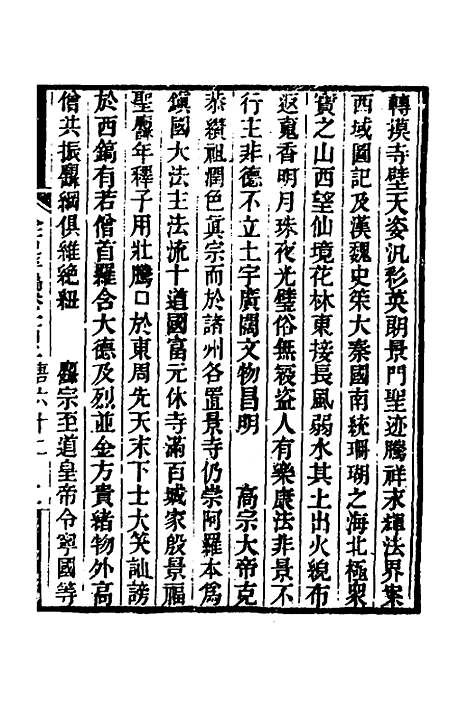 轉摸寺壁天姿汎彩英朗景門聖迹騰祥永輝法界案
西域圖記及漢魏史策大秦國南統珊瑚之海北極衆
寶之山西望仙境花林東接長風弱水其土出火綄布
返魂香明月珠夜光璧俗無寇盜人有樂康法非景不
行主非德不立土宇廣闊文物昌明　　高宗大帝克
恭纘祖潤色真宗而於諸州各置景寺仍崇阿羅本爲
鎮國大法主法流十道國富元休寺滿百城家殷景福
聖曆年釋子用壯騰口於東周先天末下士大笑訕謗
於西鎬有若僧首羅含大德及烈並金方貴緒物外高
僧共振玄綱俱維絶紐　　玄宗至道皇帝令寧國等